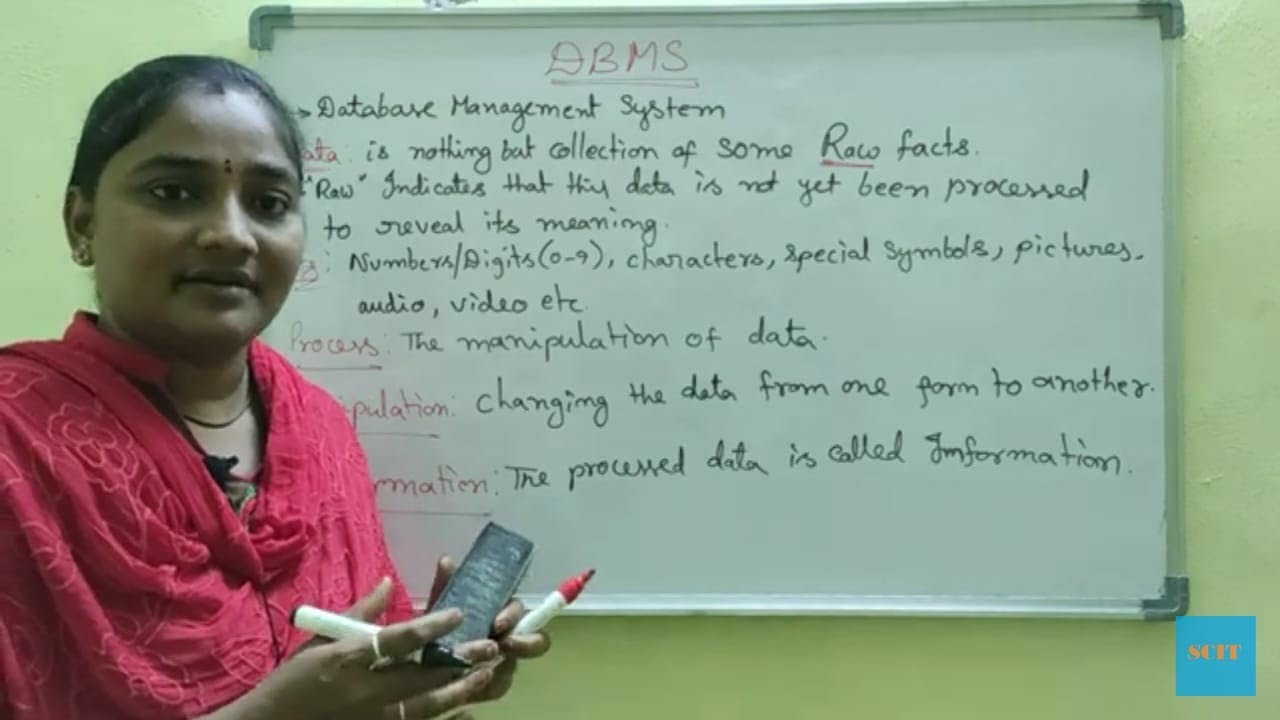 DBMS
Database Management System
ata: is nothing but collection of some Raw facts.
"Raw" Indicates that this data is not yet been processed
to reveal its meaning.
: Numbers/Digits(0-9), characters, special symbols, pictures,
audio, video etc.
Process: The manipulation of data.
ipulation: changing the data from one form to another.
rmation: The processed data is called Information.
SCIT